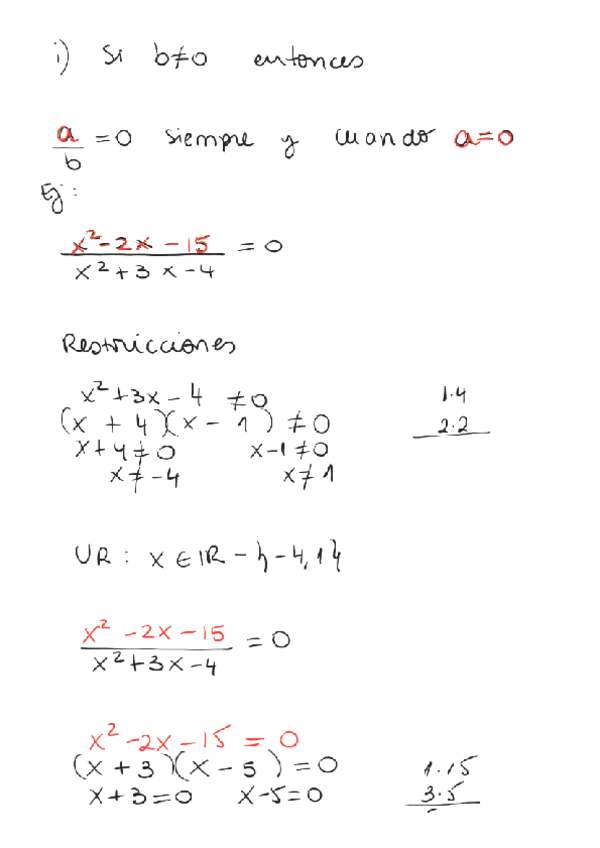 i) Si b≠0 entonces
a/b = 0 siempre y cuando a=0
Ej:
x²-2x-15 / x²+3x-4 = 0
Restricciones
x²+3x-4 ≠0 1·4
(x + 4)(x - 1) ≠0 2·2
x+4≠0 x-1≠0
x≠-4 x≠1
UR: x∈ℝ-{-4,1}
x²-2x-15 / x²+3x-4 = 0
x²-2x-15 = 0
(x+3)(x-5)=0 1·15
x+3=0 x-5=0 3·5